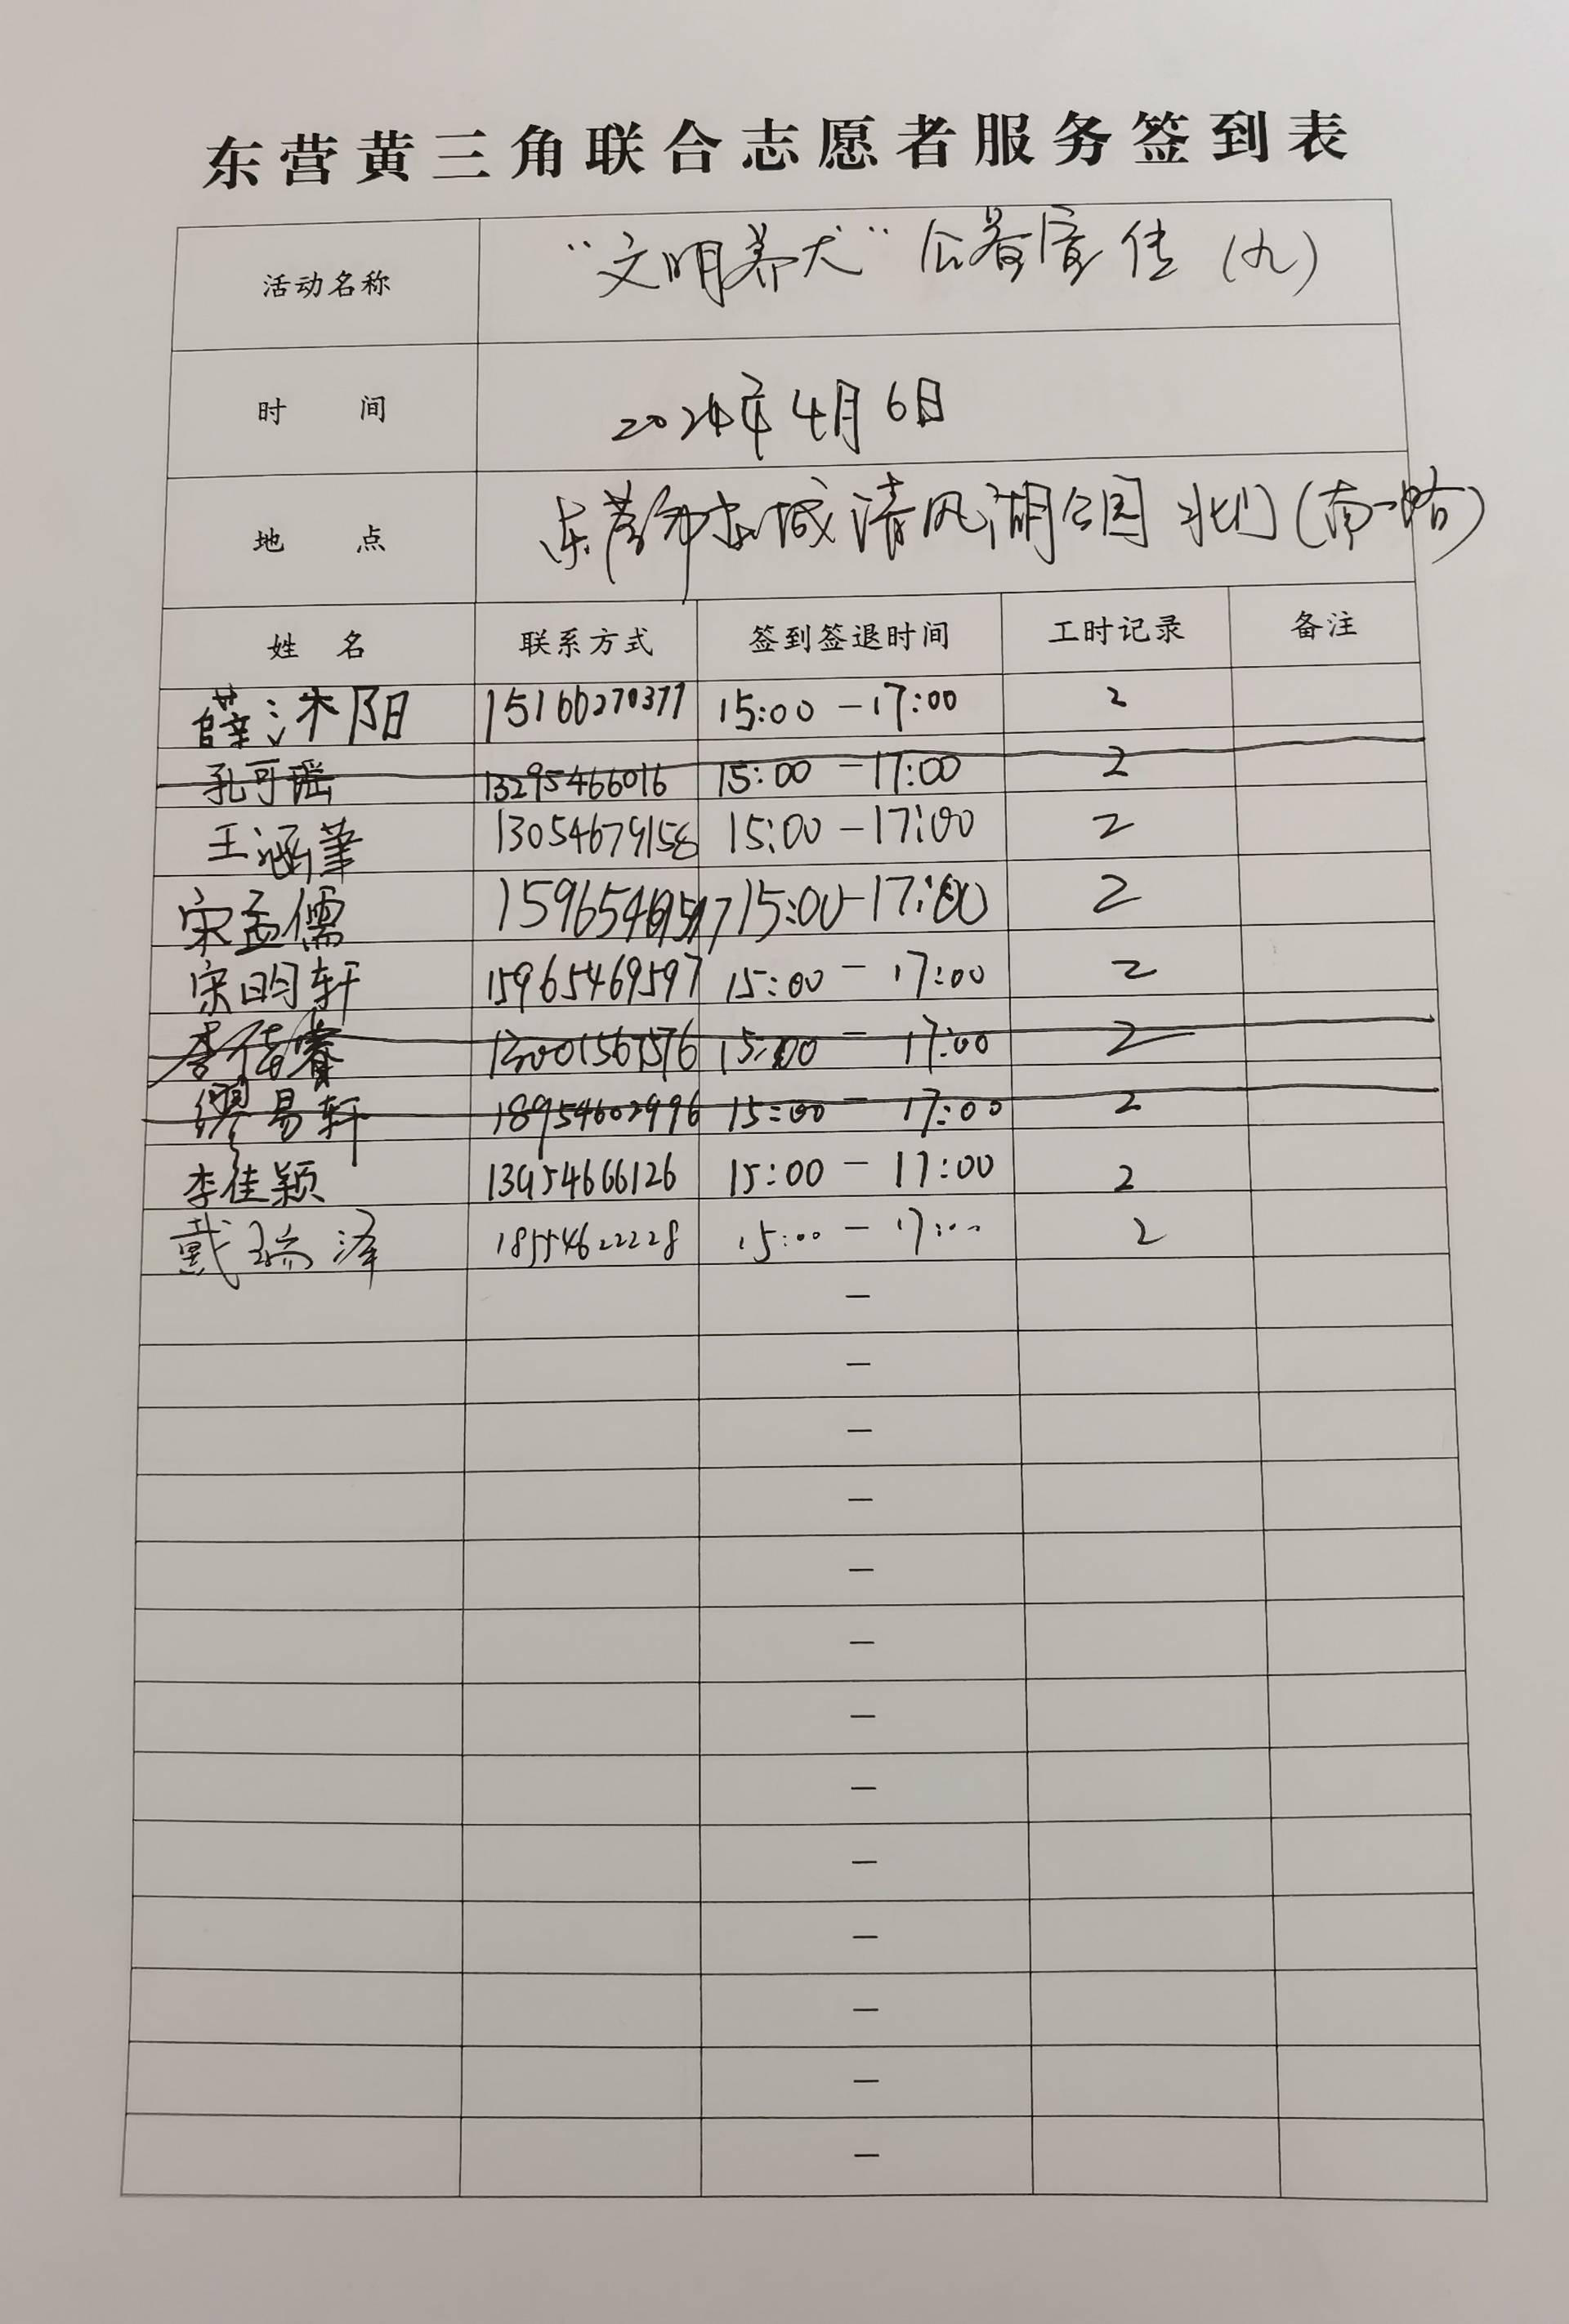 东营黄三角联合志愿者服务签到表
活动名称 “文明养犬”公益宣传（九）
时 间 2024年4月6日
地 点 东营市东城清风湖公园北门（南一路）
姓 名 联系方式 签到签退时间 工时记录 备注
薛沐阳 15166270377 15:00 - 17:00 2
孔可瑶 13295466016 15:00 - 17:00 2
王涵 13054679158 15:00 - 17:00 2
宋孟儒 15:00 - 17:00 2
宋昀轩 15965469597 15:00 - 17:00 2
李佳睿 15:00 - 17:00 2
缪易轩 18954602996 15:00 - 17:00 2
李佳颖 13954666126 15:00 - 17:00 2
戴瑞泽 18554622228 15:00 - 17:00 2
-
-
-
-
-
-
-
-
-
-
-
-
-